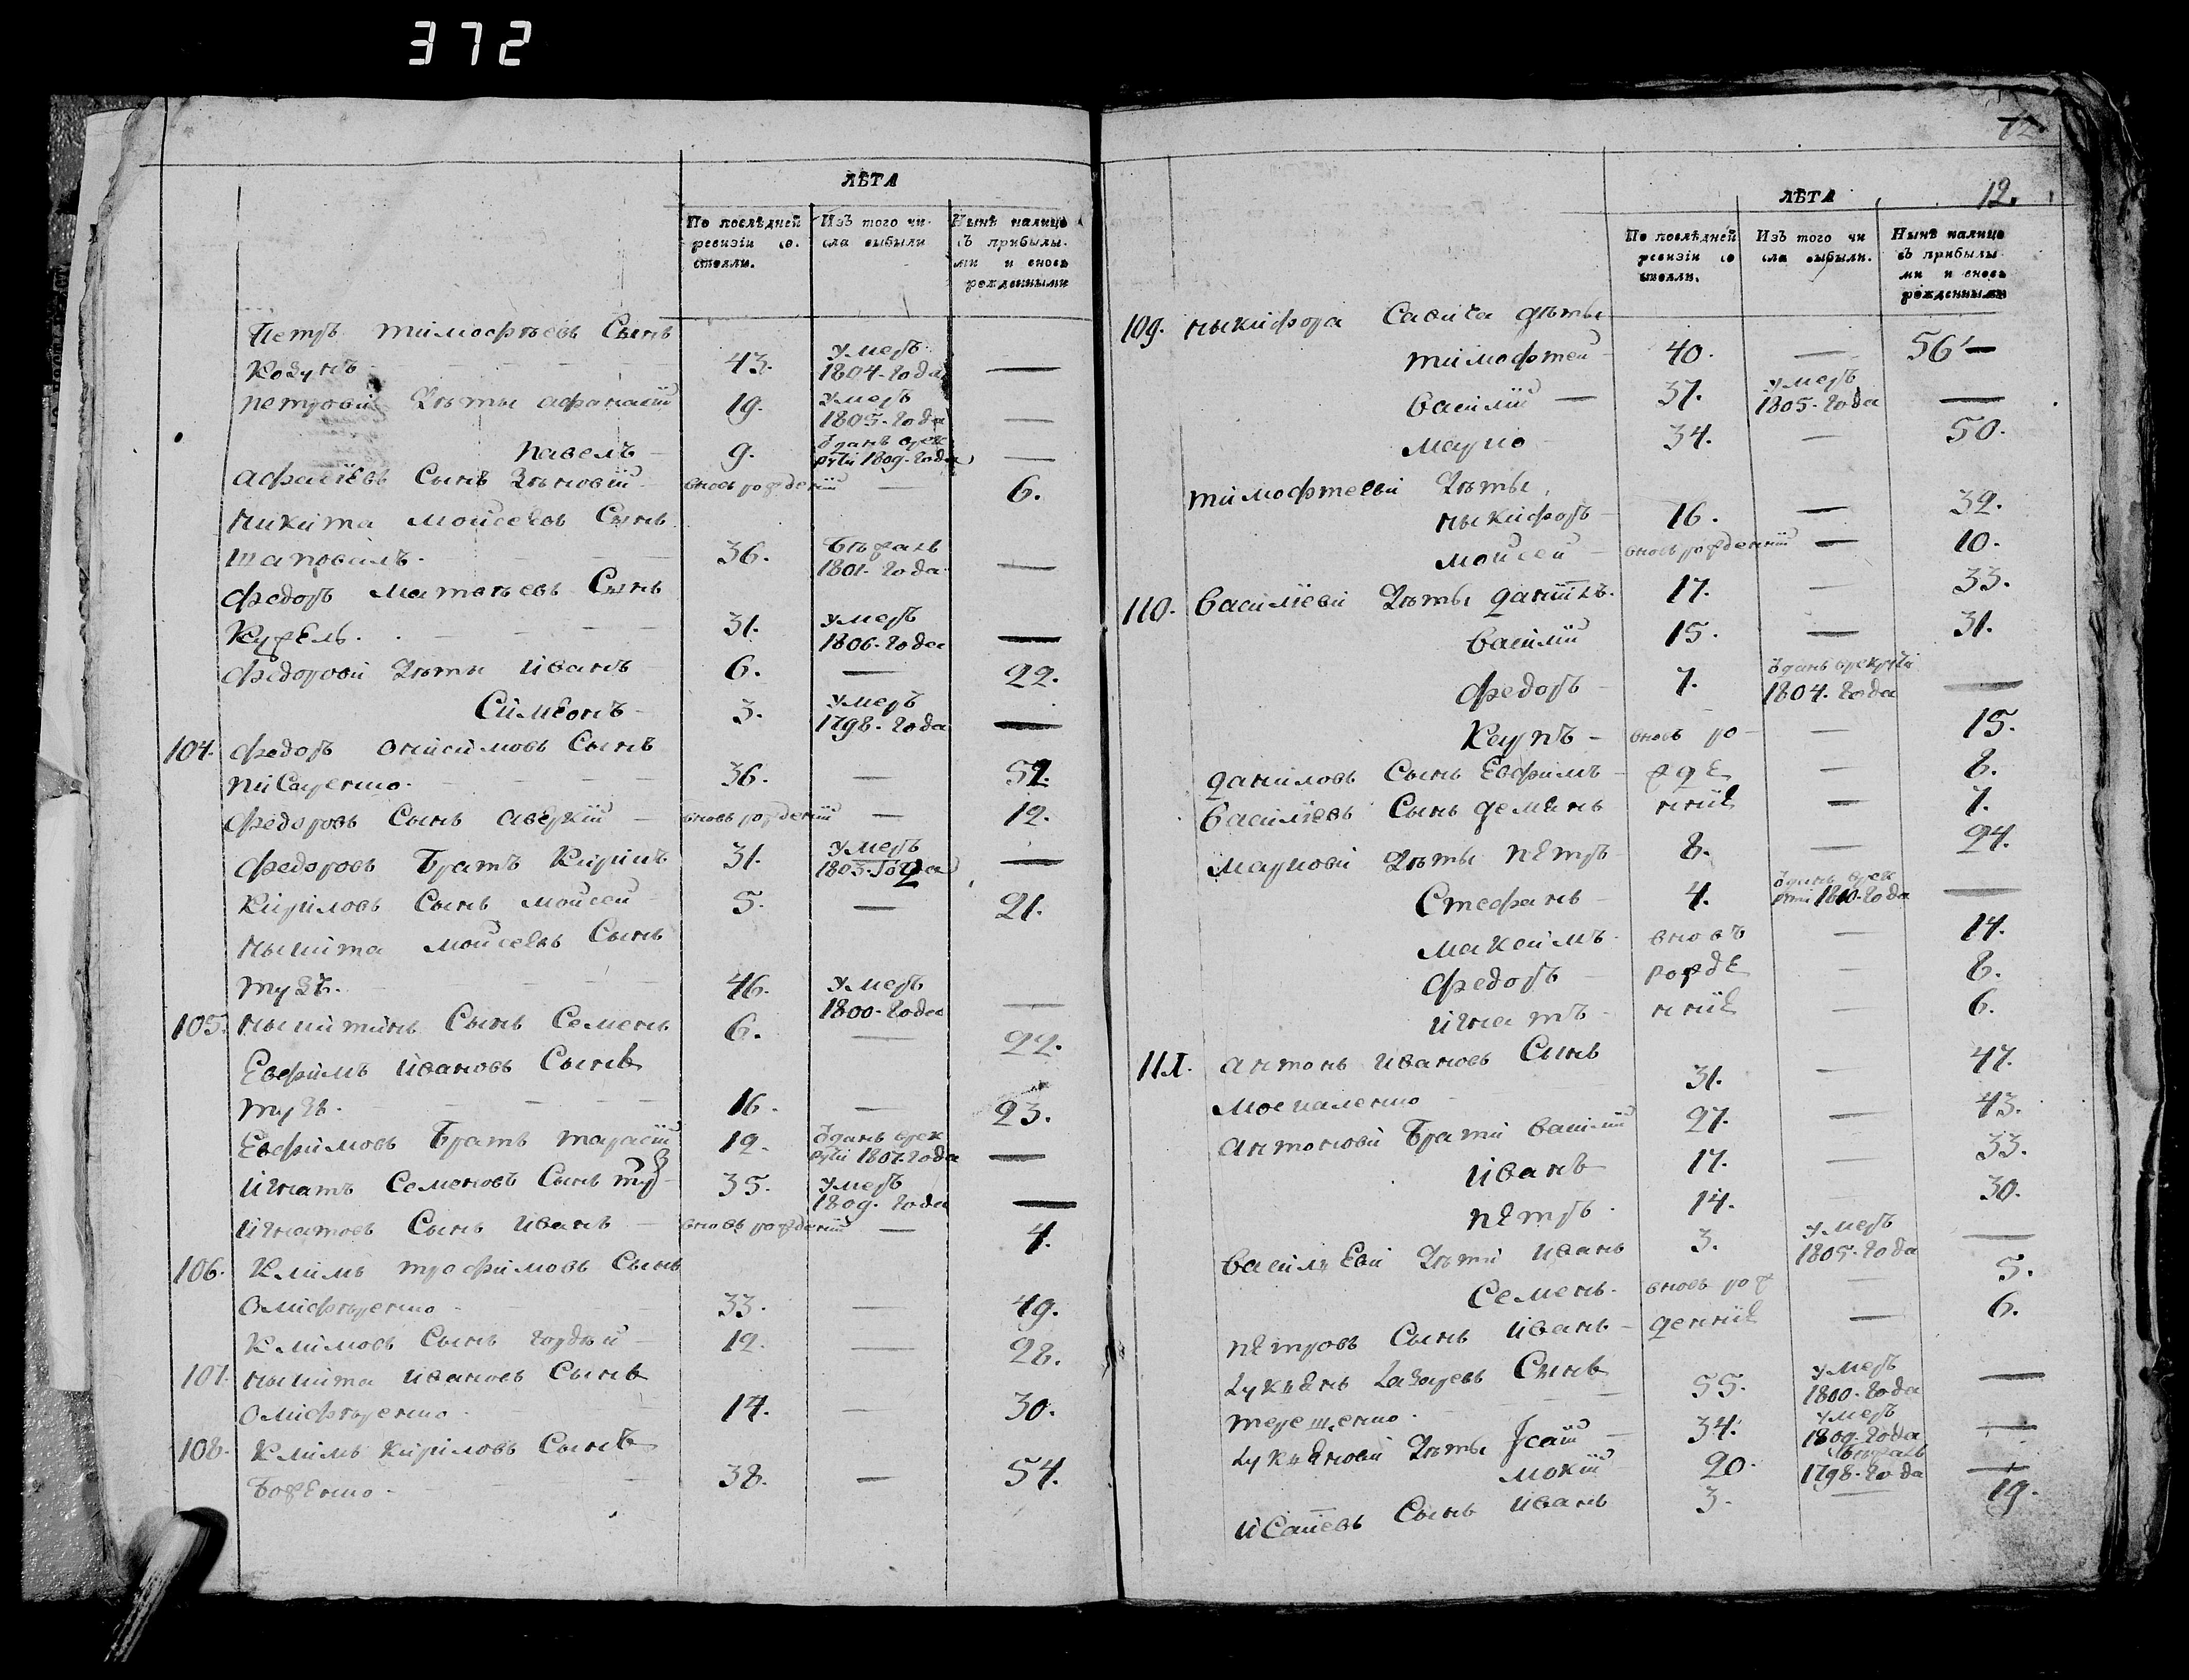 372
ЛѢТА
По послѣдней ревизіи состояли.
Изъ того числа выбыли
Нынѣ налицо съ прибылыми и вновь рожденными
Петръ тимофѣевъ Сынъ
Козунъ 43. умеръ 1804. года —
петрови дѣты афанасій 19. умеръ 1805. года —
павелъ 9. ѿданъ врек рути 1809. года —
Сынъ Зѣновій вновь рожденній — 6.
никита моисеевъ Сынъ
шаповалъ. 36. бѣжалъ 1801. года —
федоръ матвѣевъ Сынъ
Кужель. 31. умеръ 1806. года —
федорови дѣты иванъ 6. — 22.
Симеонъ 3. умеръ 1798. года —
104. федоръ онисимовъ Сынъ
писаренко. 36. — 52.
федоровъ Сынъ аверкій вновь рожденній — 12.
федоровъ братъ Кирилъ 31. умеръ 1803. года —
Кириловъ Сынъ моисей 5. — 21.
моисеевъ Сынъ
46. умеръ 1800. года —
105. Сынъ Семенъ 6. — 22.
Евфимъ ивановъ Сынъ
16. — 23.
Евфимовъ братъ тарасій 19. ѿданъ врек рути 1807. года —
игнатъ Семеновъ Сынъ 35. умеръ 1809. года —
игнатовъ Сынъ иванъ вновь рожденній — 4.
106. Климъ трофимовъ Сынъ
33. — 49.
Климовъ Сынъ гордѣй 12. — 28.
107. ивановъ Сынъ
14. — 30.
108. Климъ кириловъ Сынъ
боженко 38. — 54.
12.
ЛѢТА
По послѣдней ревизіи состояли.
Изъ того числа выбыли.
Нынѣ налицо съ прибылыми и вновь рожденными
109. ныкифора Савича дѣты
тимофтей 40. — 56 —
василій — 37. умеръ 1805. года —
марко 34. — 50.
тимофтееви дѣты
ныкифоръ 16. — 32.
моисей вновь рожденній — 10.
110. василіеви дѣты данiилъ. 17. — 33.
василій 15. — 31.
федоръ 7. ѿданъ врекрути 1804. года —
Карпъ вновь ро — 15.
даниловъ Сынъ Евфимъ жде — 8.
василіевъ Сынъ демянъ нніе — 7.
маркови дѣты петръ 8. — 24.
Стефанъ 4. ѿданъ врек рути 1810. года —
максимъ вновь — 14.
федоръ рожде — 8.
игнатъ нніе — 6.
111. антонъ ивановъ Сынъ
москаленко 31. — 47.
антонови брати василій 27. — 43.
иванъ 17. — 33.
петръ. 14. — 30.
василъеви дѣти иванъ 3. умеръ 1805. года —
Семенъ. вновь рож — 5.
петровъ Сынъ иванъ денніе — 6.
лукъянъ лазаревъ Сынъ
терещенко. 55. умеръ 1800. года —
лукъянови дѣты Iсаій 34. умеръ 1809. года —
мокій 20. бѣжалъ 1798. года —
исаіевъ Сынъ иванъ 3. — 19.